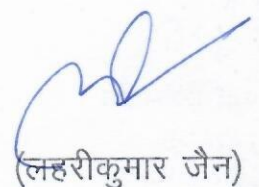 (लहरीकुमार जैन)